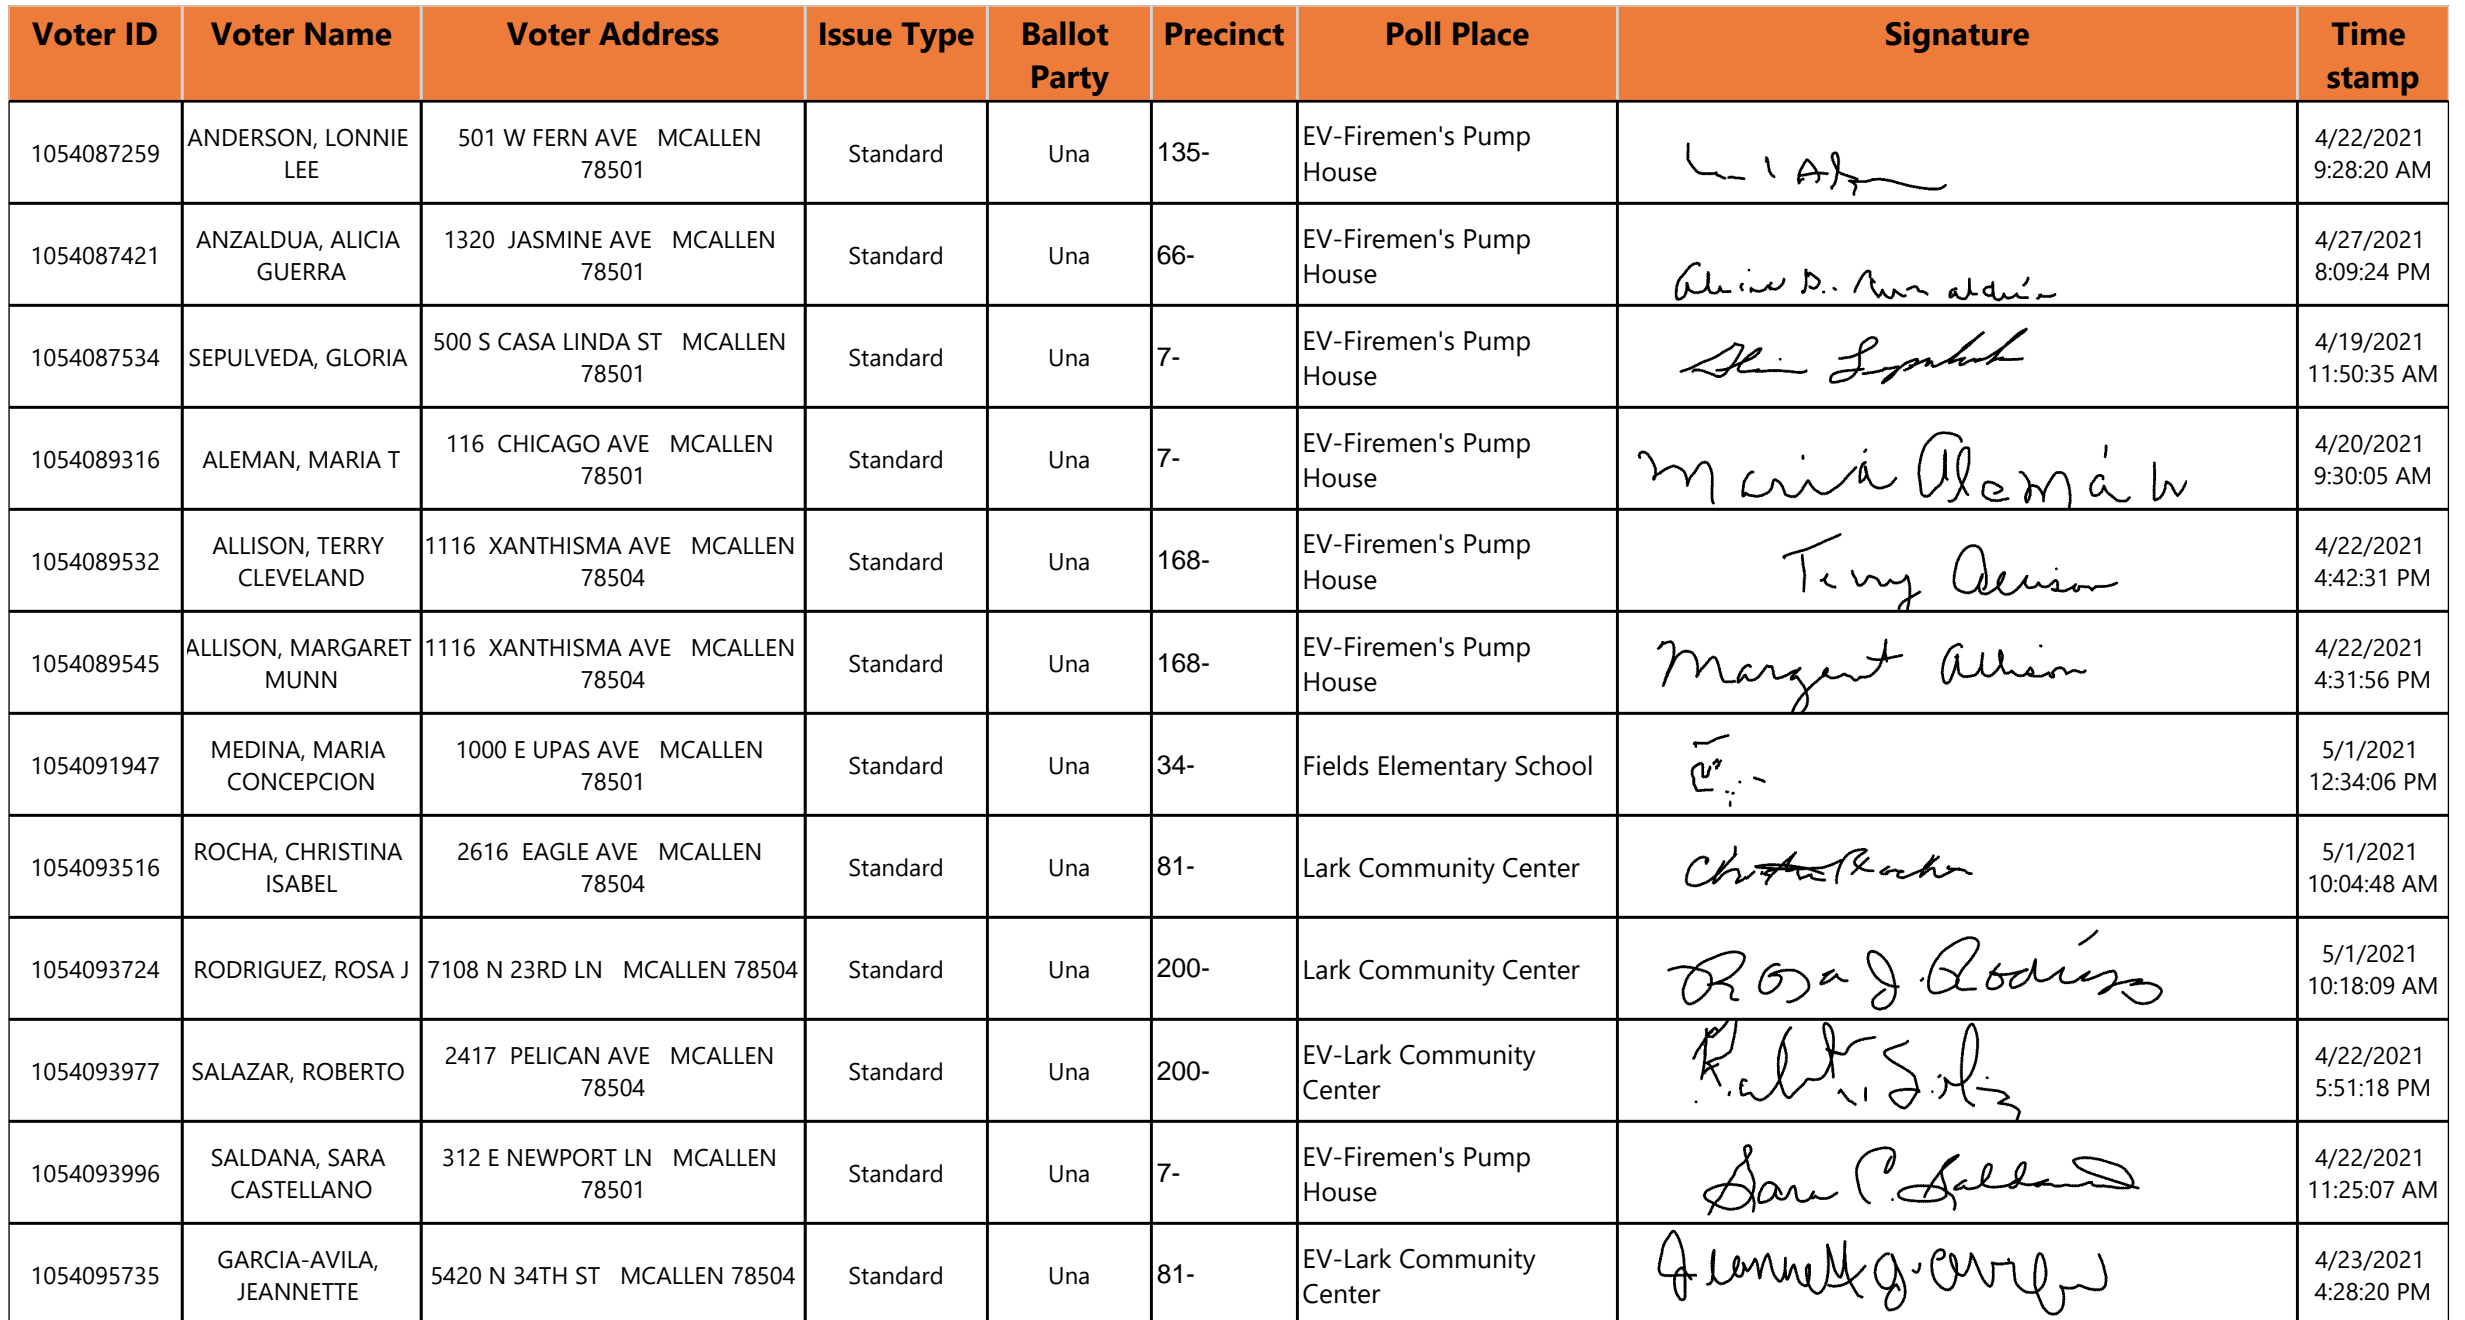 Voter ID Voter Name Voter Address Issue Type Ballot Party Precinct Poll Place Signature Time stamp
1054087259 ANDERSON, LONNIE LEE 501 W FERN AVE MCALLEN 78501 Standard Una 135- EV-Firemen's Pump House 4/22/2021 9:28:20 AM
1054087421 ANZALDUA, ALICIA GUERRA 1320 JASMINE AVE MCALLEN 78501 Standard Una 66- EV-Firemen's Pump House 4/27/2021 8:09:24 PM
1054087534 SEPULVEDA, GLORIA 500 S CASA LINDA ST MCALLEN 78501 Standard Una 7- EV-Firemen's Pump House 4/19/2021 11:50:35 AM
1054089316 ALEMAN, MARIA T 116 CHICAGO AVE MCALLEN 78501 Standard Una 7- EV-Firemen's Pump House Maria Alemán 4/20/2021 9:30:05 AM
1054089532 ALLISON, TERRY CLEVELAND 1116 XANTHISMA AVE MCALLEN 78504 Standard Una 168- EV-Firemen's Pump House Terry Allison 4/22/2021 4:42:31 PM
1054089545 ALLISON, MARGARET MUNN 1116 XANTHISMA AVE MCALLEN 78504 Standard Una 168- EV-Firemen's Pump House Margaret Allison 4/22/2021 4:31:56 PM
1054091947 MEDINA, MARIA CONCEPCION 1000 E UPAS AVE MCALLEN 78501 Standard Una 34- Fields Elementary School 5/1/2021 12:34:06 PM
1054093516 ROCHA, CHRISTINA ISABEL 2616 EAGLE AVE MCALLEN 78504 Standard Una 81- Lark Community Center 5/1/2021 10:04:48 AM
1054093724 RODRIGUEZ, ROSA J 7108 N 23RD LN MCALLEN 78504 Standard Una 200- Lark Community Center Rosa J. 5/1/2021 10:18:09 AM
1054093977 SALAZAR, ROBERTO 2417 PELICAN AVE MCALLEN 78504 Standard Una 200- EV-Lark Community Center 4/22/2021 5:51:18 PM
1054093996 SALDANA, SARA CASTELLANO 312 E NEWPORT LN MCALLEN 78501 Standard Una 7- EV-Firemen's Pump House Sara C. Saldana 4/22/2021 11:25:07 AM
1054095735 GARCIA-AVILA, JEANNETTE 5420 N 34TH ST MCALLEN 78504 Standard Una 81- EV-Lark Community Center 4/23/2021 4:28:20 PM